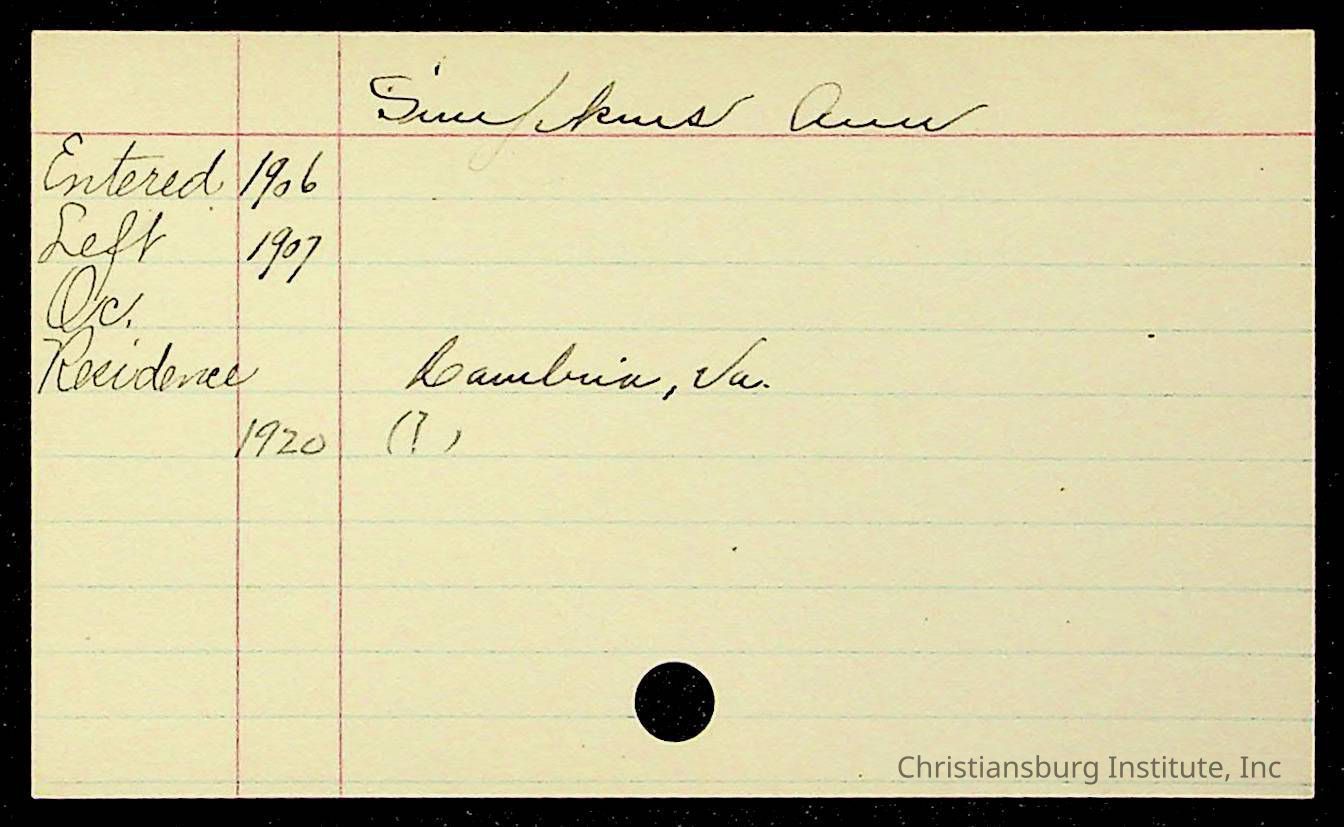 Simpkins Ann
Entered 1906
Left 1907
Oc.
Residence Cambria, Va.
1920 (?)
Christiansburg Institute, Inc